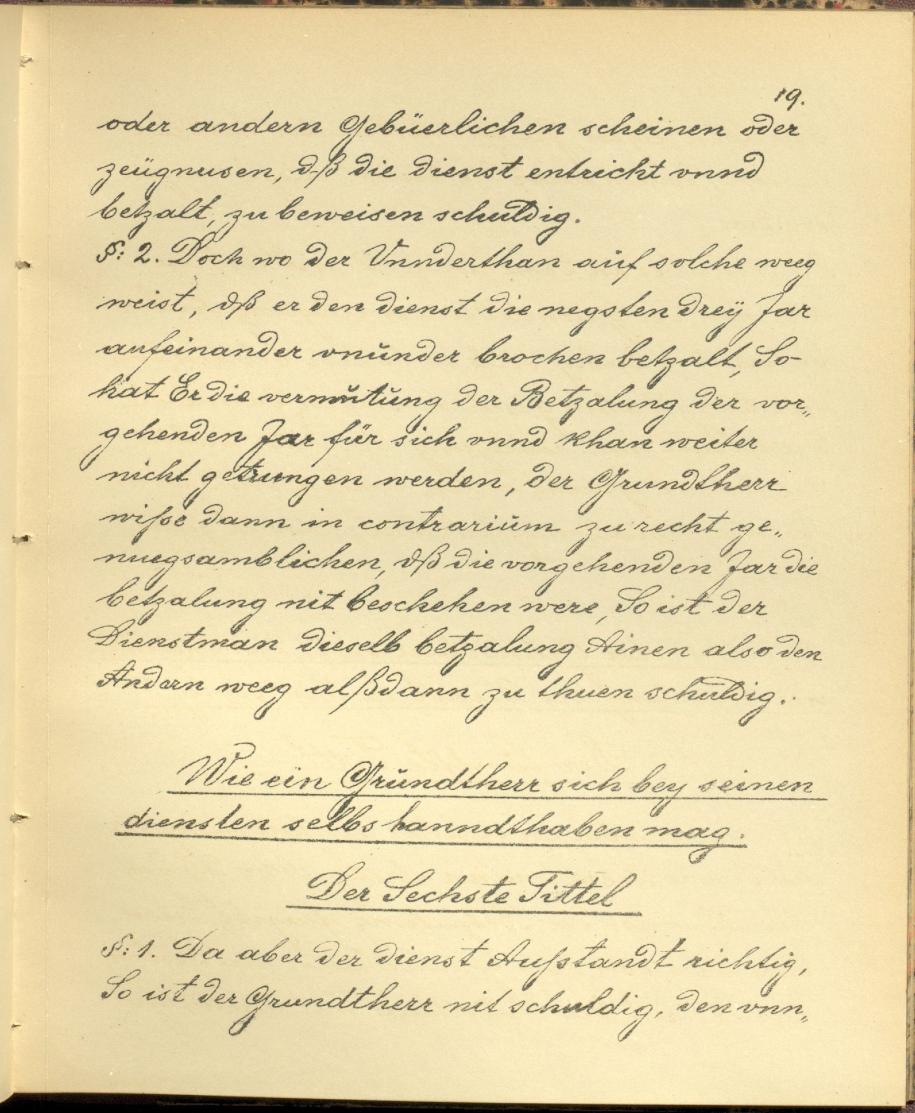 19.
oder andern Gebüerlichen scheinen oder
zeügnusen, dß die dienst entricht vnnd
betzalt, zu beweisen schuldig.
§: 2. Doch wo der Vnnderthan auf solche weeg
weist, dß er den dienst die negsten dreÿ Jar
aufeinander vnŭnder brochen betzalt, So-
hat Er die vermŭtŭng der Betzalung der vor„
gehenden Jar für sich vnnd khan weiter
nicht getrungen werden, der Grundtherr
wiße dann in contrariŭm zu recht ge„
nuegsamblichen, dß die vorgehenden Jar die
betzalung nit beschehen were, So ist der
Dienstman dieselb betzalung Ainen also den
Andern weeg alßdann zu thuen schuldig.
Wie ein Grŭndtherr sich bey seinen
diensten selbs hanndthaben mag.
Der Sechste Tittel
§: 1. Da aber der dienst Außtandt richtig,
So ist der Grundtherr nit schuldig, den vnn„